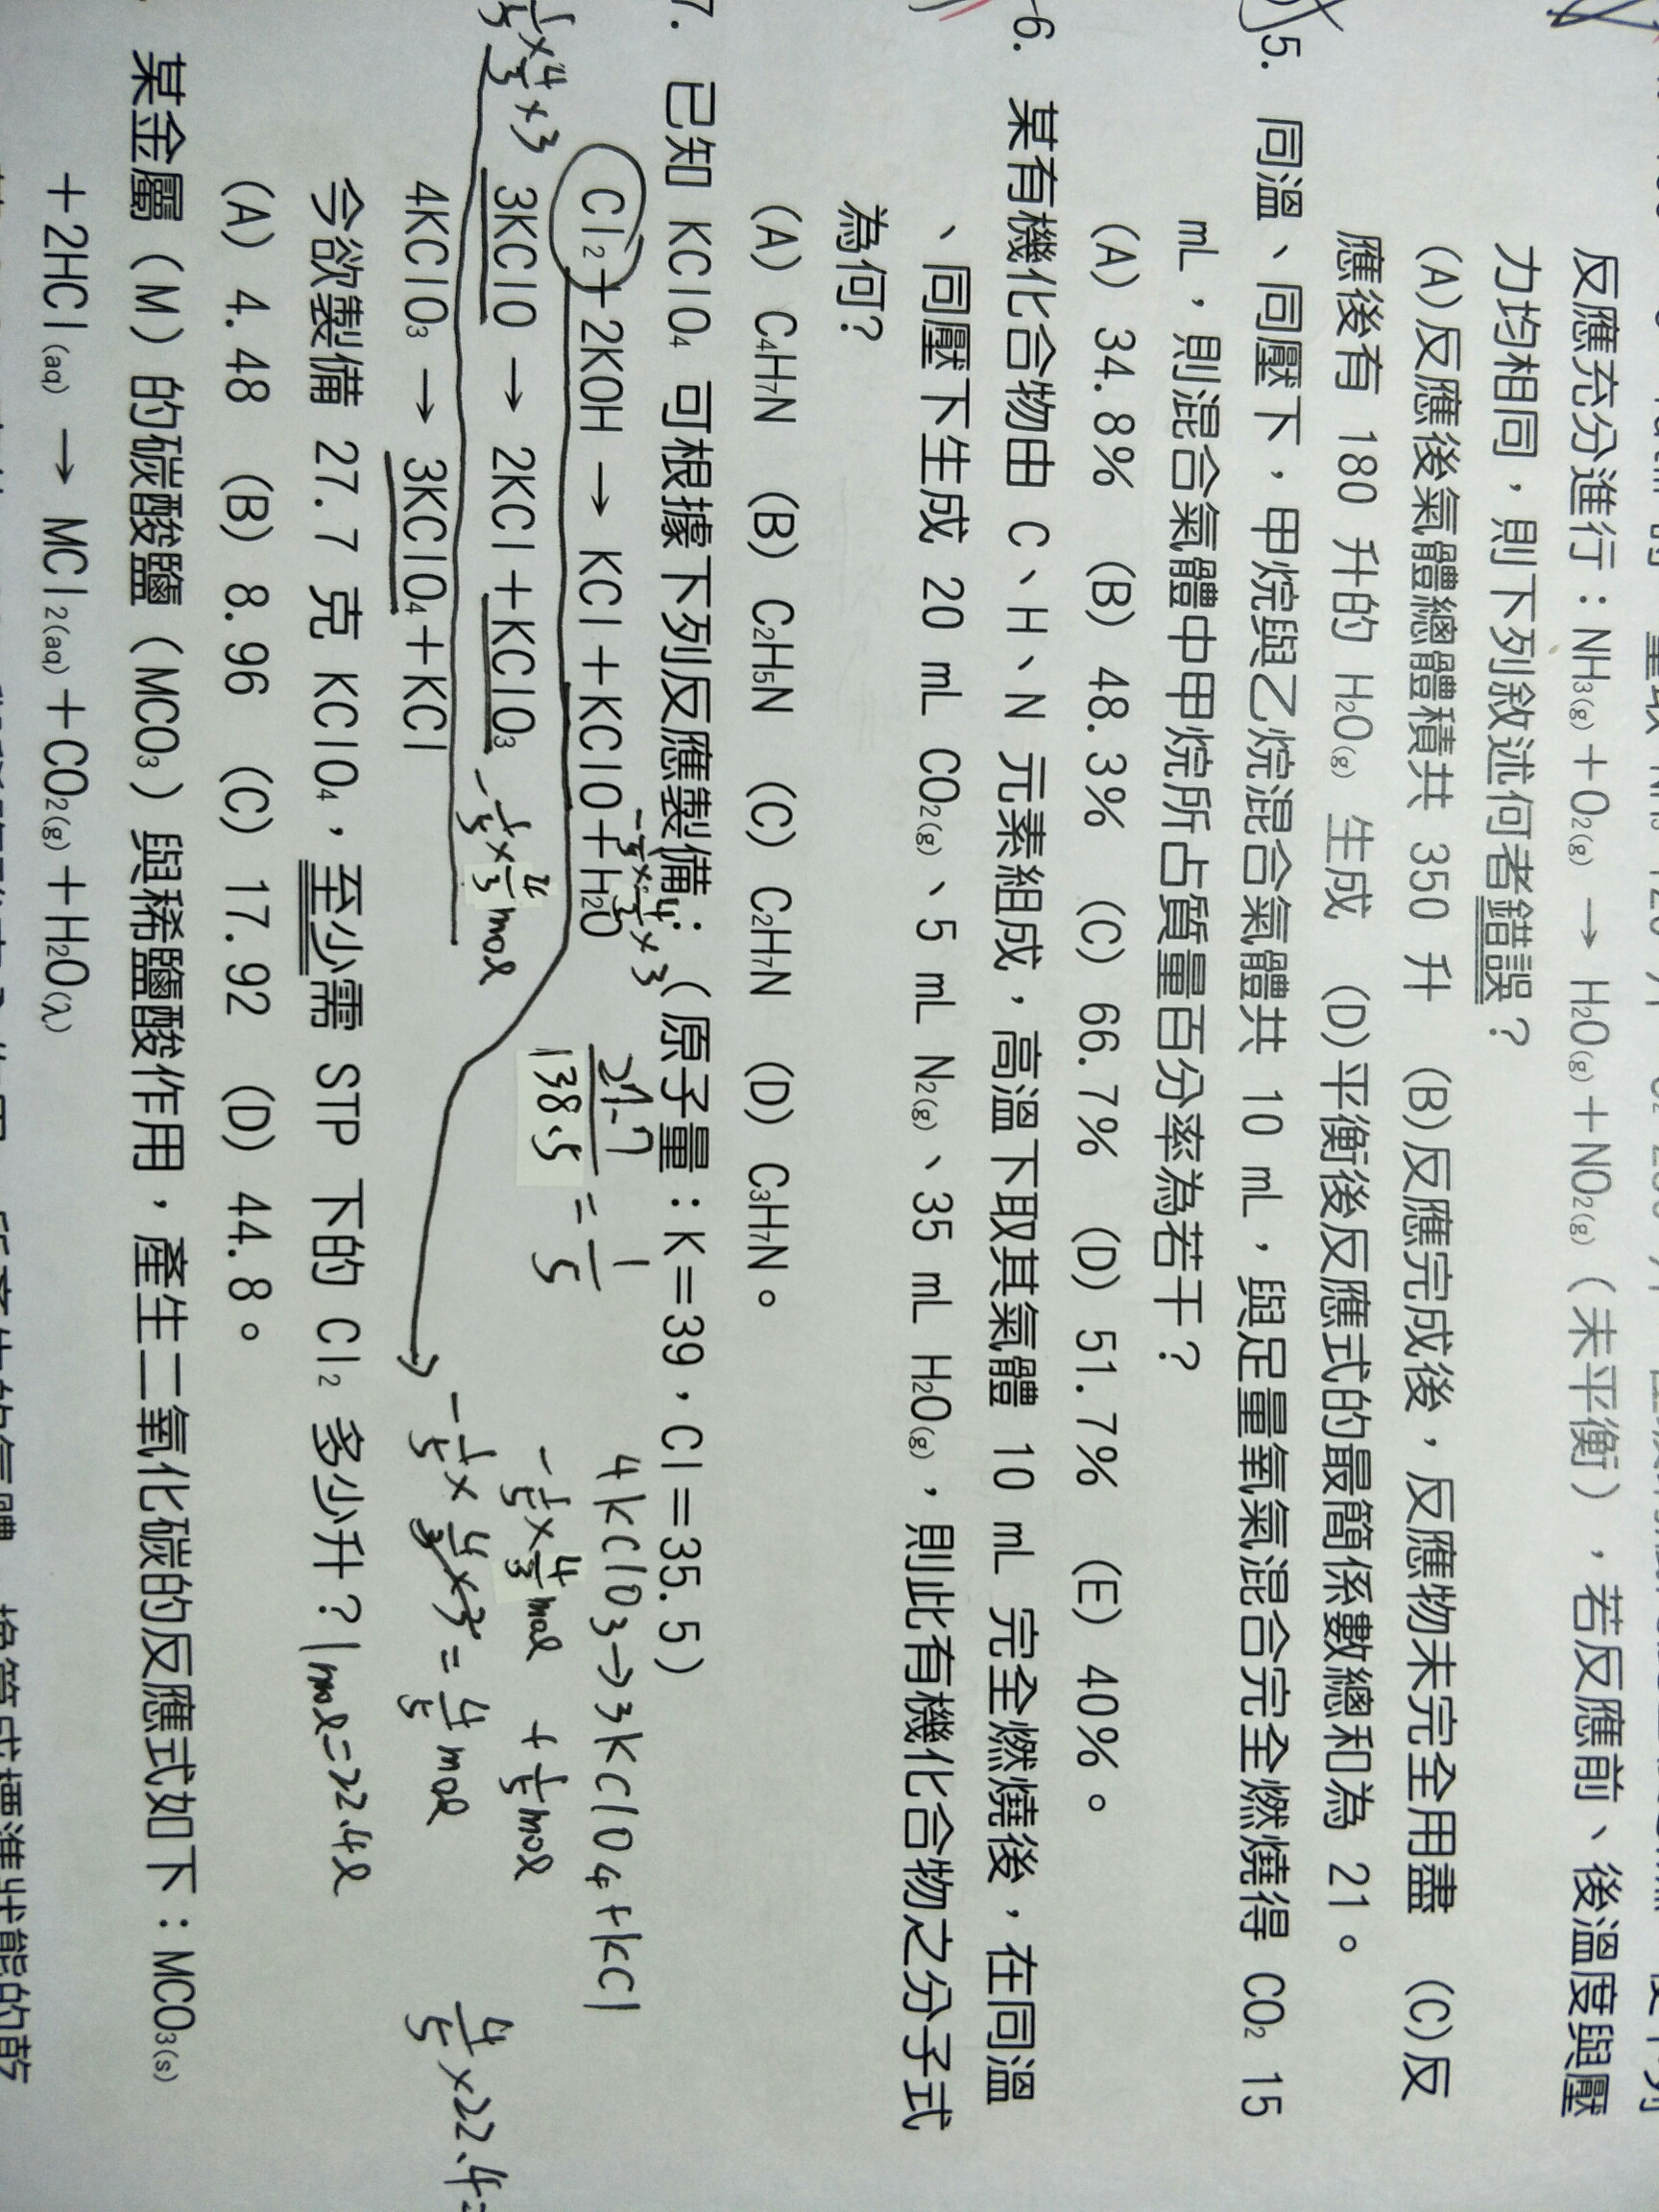 反應充分進行：NH₃(g)＋O₂(g) → H₂O(g)＋NO₂(g)（未平衡），若反應前、後溫度與壓
力均相同，則下列敘述何者錯誤？
(A)反應後氣體總體積共 350 升 (B)反應完成後，反應物未完全用盡 (C)反
應後有 180 升的 H₂O(g) 生成 (D)平衡後反應式的最簡係數總和為 21。
5. 同溫、同壓下，甲烷與乙烷混合氣體共 10 mL，與足量氧氣混合完全燃燒得 CO₂ 15
mL，則混合氣體中甲烷所占質量百分率為若干？
(A) 34.8% (B) 48.3% (C) 66.7% (D) 51.7% (E) 40%。
6. 某有機化合物由 C、H、N 元素組成，高溫下取其氣體 10 mL 完全燃燒後，在同溫
、同壓下生成 20 mL CO₂(g)、5 mL N₂(g)、35 mL H₂O(g)，則此有機化合物之分子式
為何？
(A) C₄H₇N (B) C₂H₅N (C) C₂H₇N (D) C₃H₇N。
7. 已知 KClO₄ 可根據下列反應製備：（原子量：K＝39，Cl＝35.5）
-1/5×4/3×3
Cl₂＋2KOH → KCl＋KClO＋H₂O
27.7/138.5 = 1/5
4KClO₃→3KClO₄+KCl
1/5×4/3×3
3KClO → 2KCl＋KClO₃
-1/5×4/3mol
-1/5×4/3mol +1/5mol
4KClO₃ → 3KClO₄＋KCl
-1/5×4/3×3=4/5mol
4/5×22.4=
今欲製備 27.7 克 KClO₄，至少需 STP 下的 Cl₂ 多少升？
1mol=22.4l
(A) 4.48 (B) 8.96 (C) 17.92 (D) 44.8。
某金屬（M）的碳酸鹽（MCO₃）與稀鹽酸作用，產生二氧化碳的反應式如下：MCO₃(s)
＋2HCl(aq) → MCl₂(aq)＋CO₂(g)＋H₂O(ℓ)